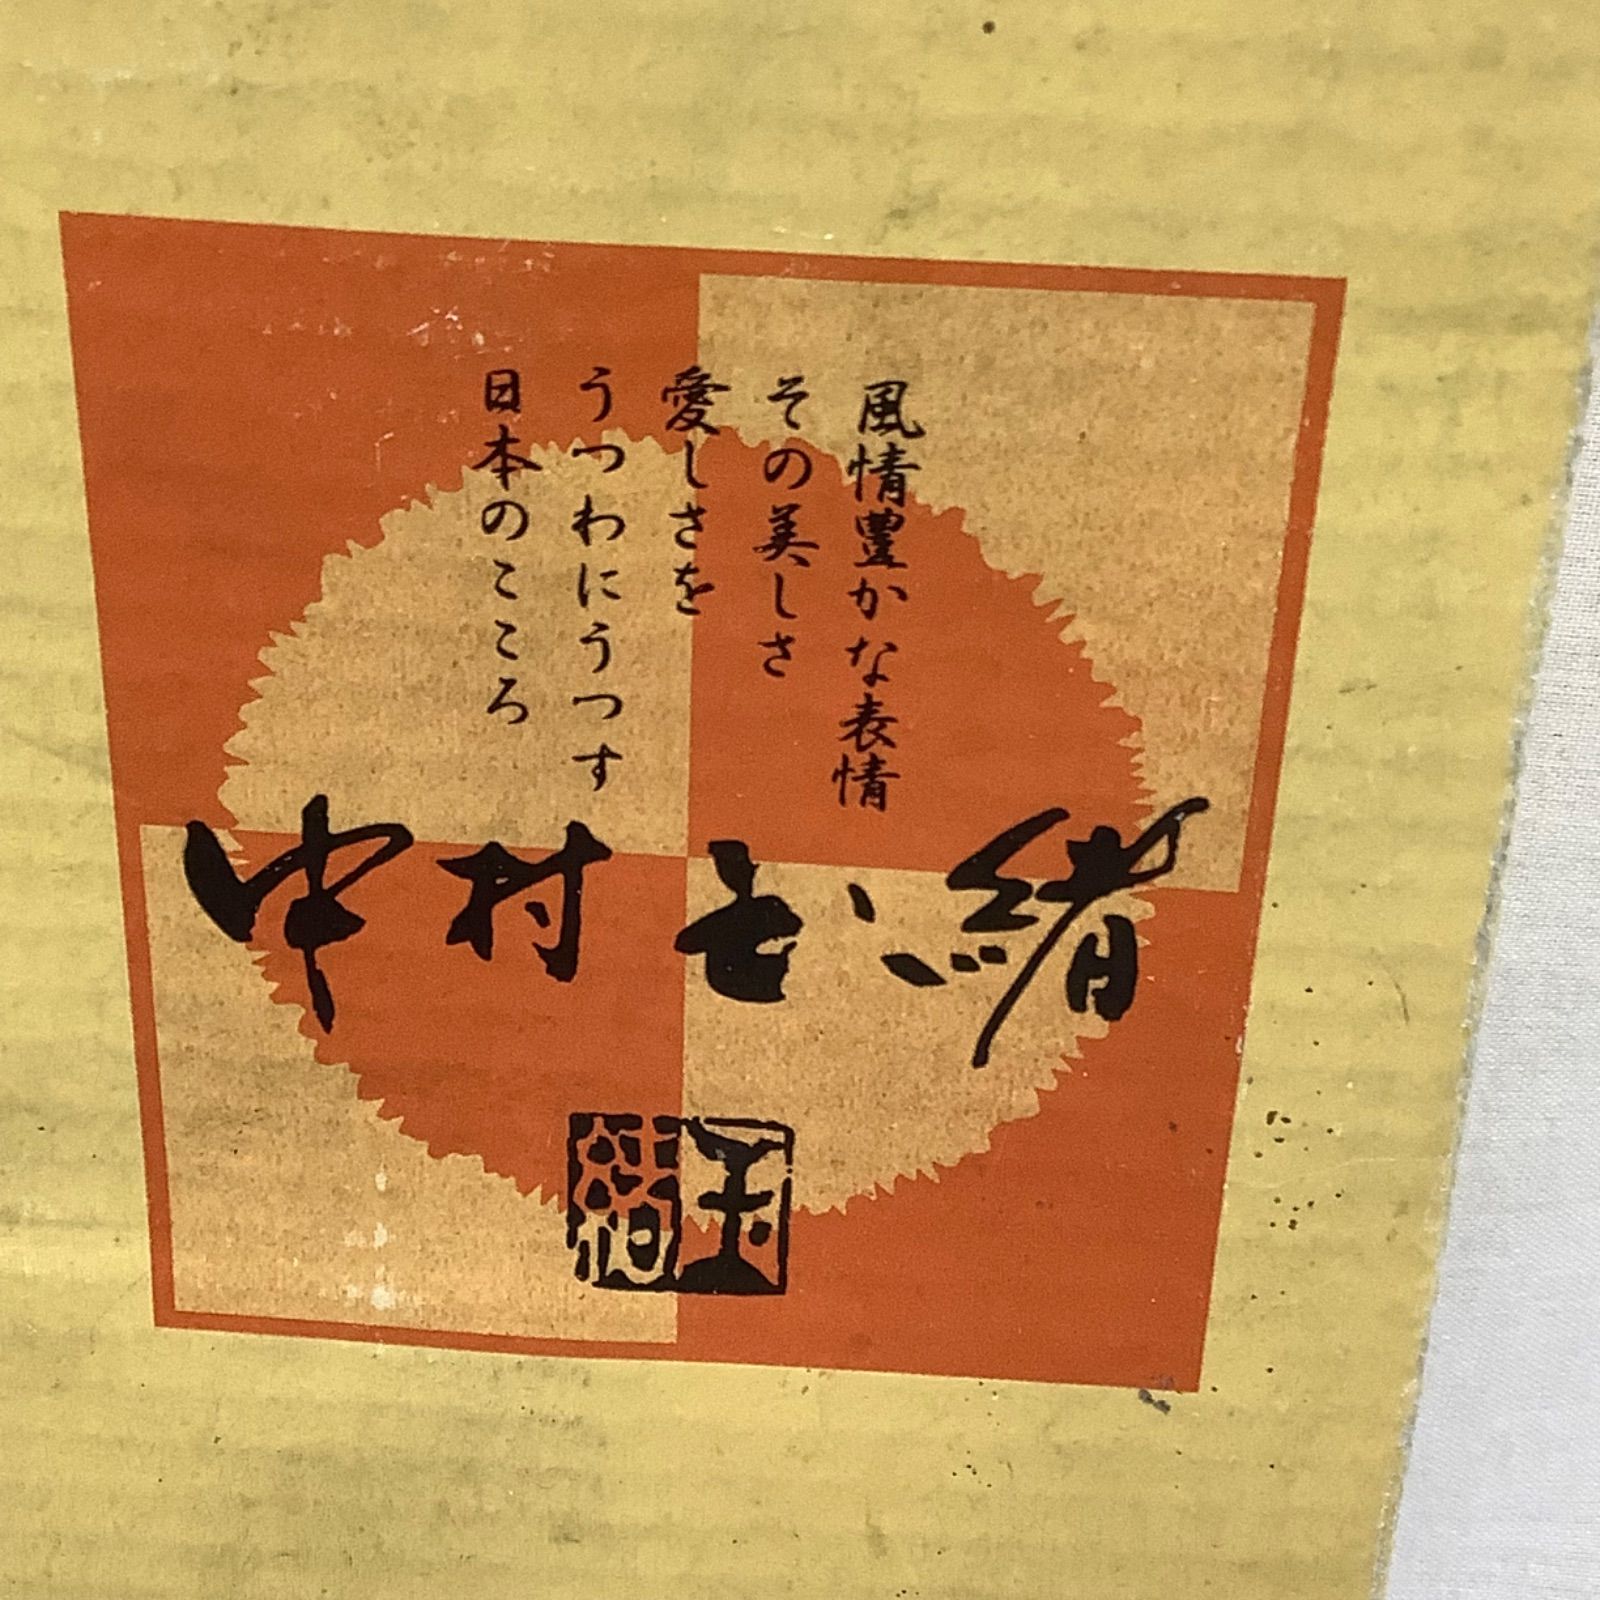 風情豊かな表情
その美しさ
愛しさを
うつわにうつす
日本のこころ
中村玉緒
玉緒